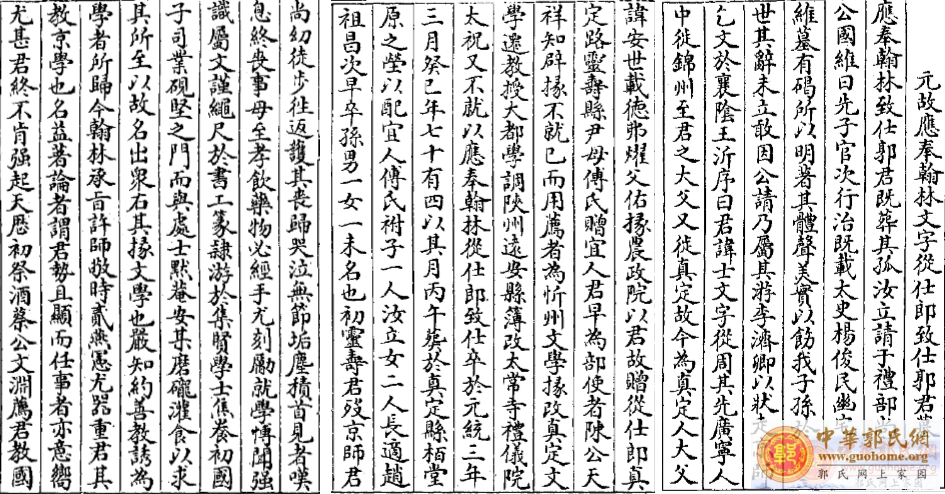 元故應奉翰林文字從仕郎致仕郭君
應奉翰林致仕郭君既葬其孤汝立請于禮部
公國維曰先子官次行治既載太史楊俊民幽
維墓有碣所以明著其體聲美實以飭我子孫
世其辭未立敢因公請乃屬其游李濟卿以狀
乞文於襄陰王沂序曰君諱士文字從周其先廣寧人
中徙錦州至君之大父又徙真定故今為真定人大父
諱安世載德弗燿父佑掾農政院以君故贈從仕郎真
定路靈壽縣尹母傅氏贈宜人君早為部使者陳公天
祥知辟掾不就已而用薦者為忻州文學掾改真定文
學遷教授大都學調陝州遠安縣簿改太常寺禮儀院
太祝又不就以應奉翰林從仕郎致仕卒於元統三年
三月癸巳年七十有四以其月丙午葬於真定縣栢堂
原之塋以配宜人傅氏祔子一人汝立女二人長適趙
祖昌次早卒孫男一女一未名也初靈壽君歿京師君
尚幼徒步往返護其喪歸哭泣無節垢塵積首見者嘆
息終喪事母至孝飲藥物必經手尤刻勵就學博聞強
識屬文謹繩尺於書工篆隸游於集賢學士焦養初國
子司業硯堅之門而與處士默菴安其磨礲漼食以求
其所至以故名出衆右其掾文學也嚴知約善教誘為
學者所歸今翰林承㫖許師敬時貳燕憲尤器重君其
教京學也名益著論者謂君勢且顯而任事者亦意嚮
尤甚君終不肯强起天厯初祭酒蔡公文淵薦君教國
中華郭氏網
www.guo
郭氏网上家园